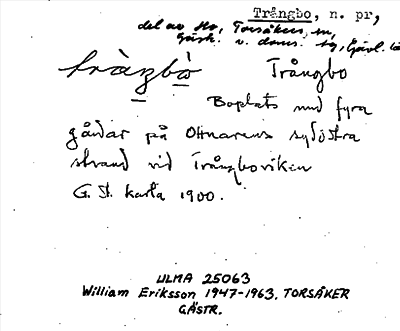 Trångbo, n. pr,
del av Ho, Torsåkers sn,
Gästr. v. doms. sg, Gävl. län
tràngbò Trångbo
Boplats med fyra
gårdar på Ottnarens sydöstra
strand vid Trångboviken
G. St. karta 1900.
ULMA 25063
William Eriksson 1947-1963. TORSÅKER
GÄSTR.